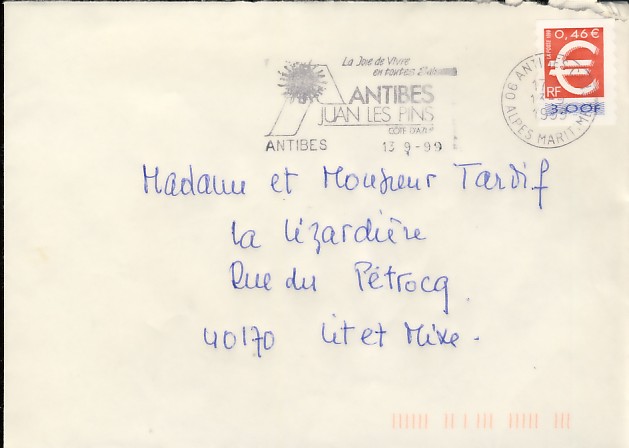 La Joie de Vivre
en toutes
ANTIBES
JUAN LES PINS
CÔTE D'AZUR
ANTIBES
13-9-99
0,46 €
LA POSTE 1999
RF
3,00F
06 ANTIBES
17
1999
ALPES MARIT.
Madame et Monsieur Tardif
La Lézardière
Rue du Pétrocq
40170 Lit et Mixe.